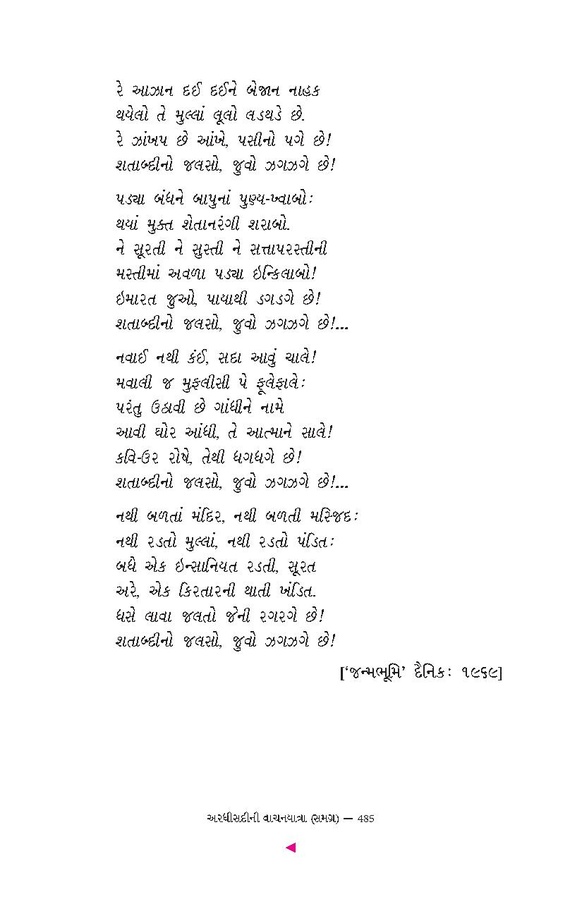 રે આઝાન દઈ દઈને બેજાન નાહક
થયેલો તે મુલ્લાં લૂલો લડથડે છે.
રે ઝાંખપ છે આંખે, પસીનો પગે છે!
શતાબ્દીનો જલસો, જુવો ઝગઝગે છે!
પડ્યા બંધને બાપુનાં પુણ્ય-ખ્વાબો:
થયાં મુક્ત શેતાનરંગી શરાબો.
ને સૂરતી ને સુસ્તી ને સત્તાપરસ્તીની
મસ્તીમાં અવળા પડ્યા ઇન્કિલાબો!
ઇમારત જુઓ, પાયાથી ડગડગે છે!
શતાબ્દીનો જલસો, જુવો ઝગઝગે છે!...
નવાઈ નથી કંઈ, સદા આવું ચાલે!
મવાલી જ મુફલીસી પે ફૂલેફાલે:
પરંતુ ઉઠાવી છે ગાંધીને નામે
આવી ઘોર આંધી, તે આત્માને સાલે!
કવિ-ઉર રોષે, તેથી ધગધગે છે!
શતાબ્દીનો જલસો, જુવો ઝગઝગે છે!...
નથી બળતાં મંદિર, નથી બળતી મસ્જિદ:
નથી રડતો મુલ્લાં, નથી રડતો પંડિત:
બધે એક ઇન્સાનિયત રડતી, સૂરત
અરે, એક કિરતારની થાતી ખંડિત.
ધસે લાવા જલતો જેની રગરગે છે!
શતાબ્દીનો જલસો, જુવો ઝગઝગે છે!
[‘જન્મભૂમિ’ દૈનિક: ૧૯૬૯]
અરધીસદીની વાચનયાત્રા (સમગ્ર) — 485